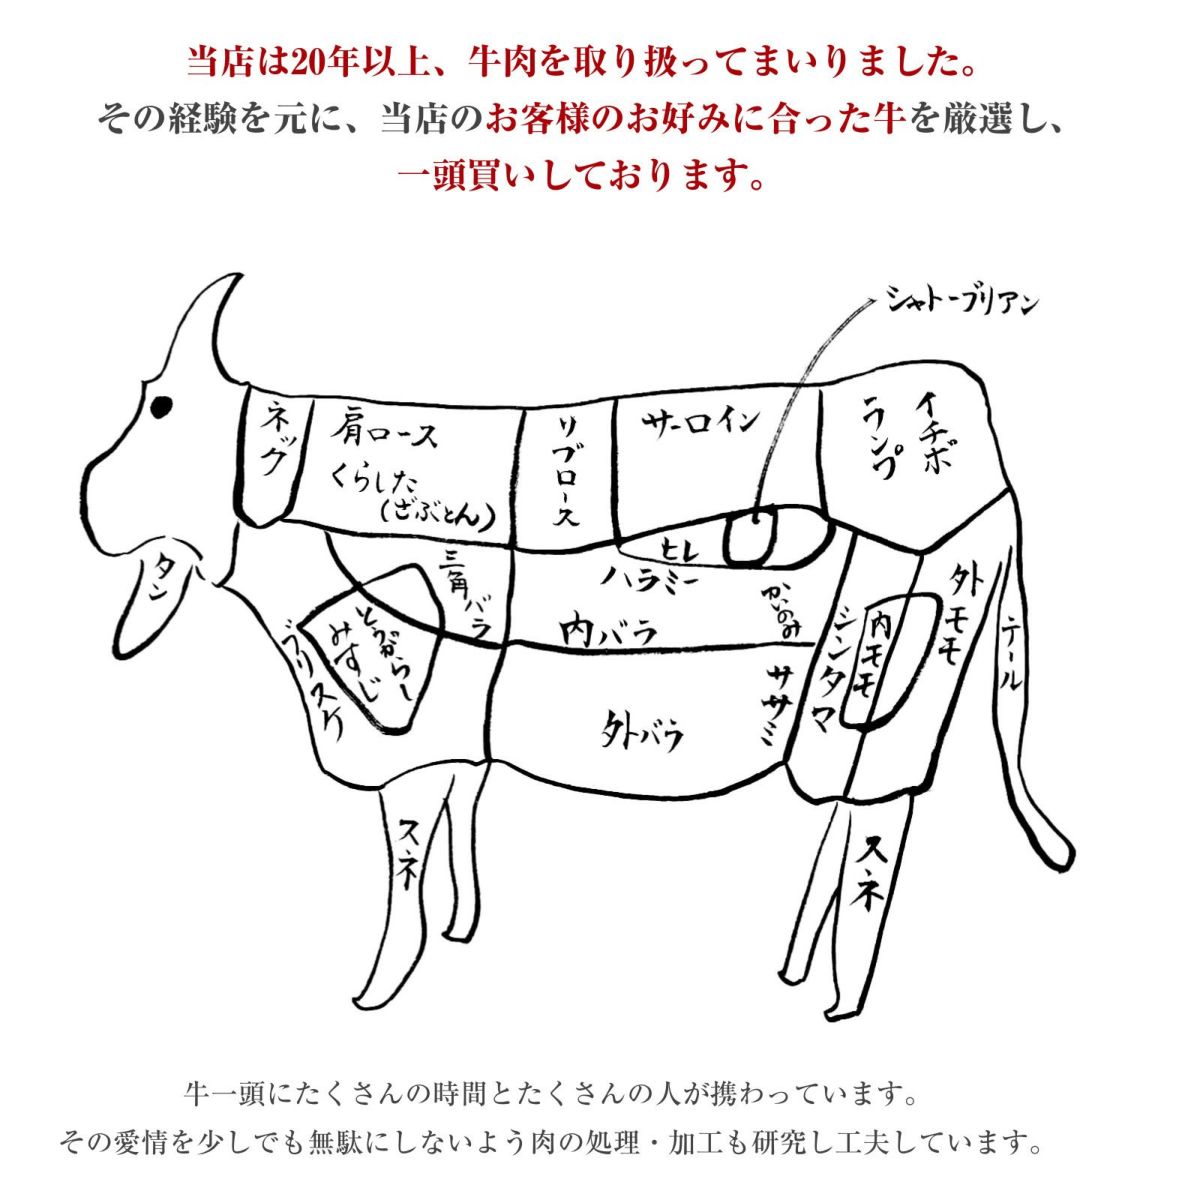 当店は20年以上、牛肉を取り扱ってまいりました。
その経験を元に、当店のお客様のお好みに合った牛を厳選し、
一頭買いしております。
シャトーブリアン
ネック
肩ロース
くらした
(ざぶとん)
リブロース
サーロイン
ランプ
イチボ
タン
三角バラ
ヒレ
ハラミー
かいのみ
内バラ
とうがらし
みすじ
ブリスケ
外バラ
ササミ
シンタマ
内モモ
外モモ
テール
スネ
スネ
牛一頭にたくさんの時間とたくさんの人が携わっています。
その愛情を少しでも無駄にしないよう肉の処理・加工も研究し工夫しています。